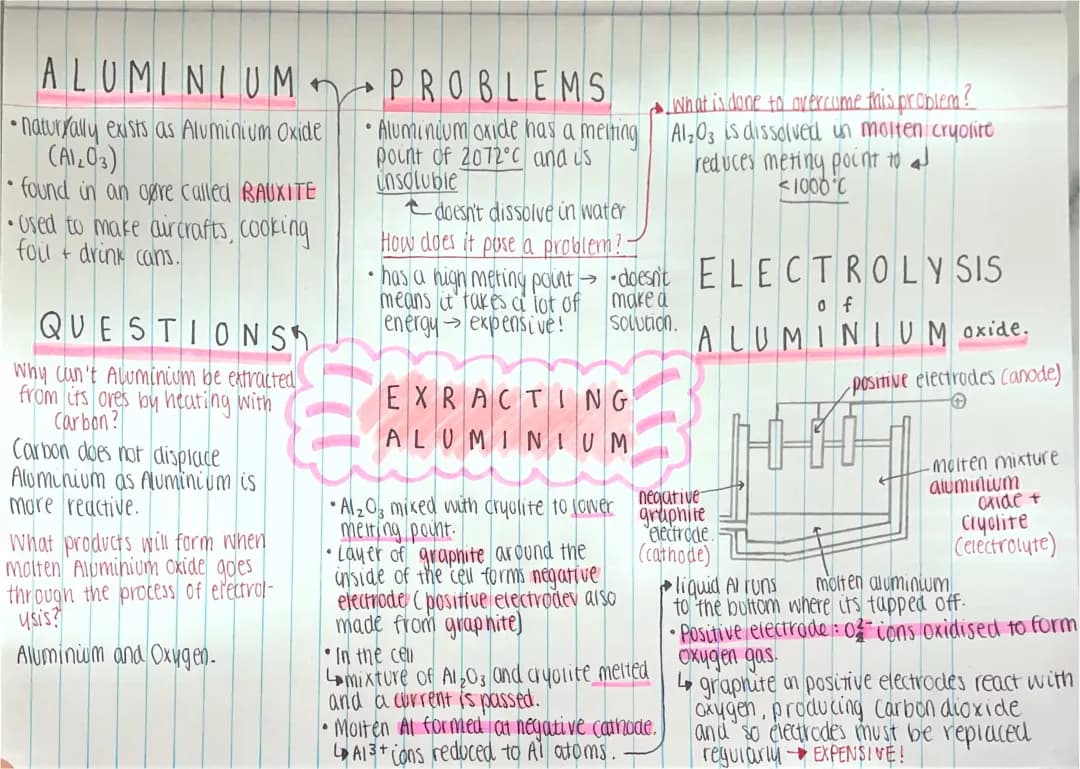 ALUMINIUM
• naturally exists as Aluminium Oxide
(Al₂O₃)
• found in an ore called BAUXITE
• Used to make aircrafts, cooking
foil + drink cans.
PROBLEMS
• Aluminium oxide has a melting
point of 2072°C and is
insoluble
doesn't dissolve in water
How does it pose a problem?
• has a high meting point →
means it takes a lot of
energy → expensive!
• doesn't
make a
solution.
What is done to overcome this problem?
Al₂O₃ is dissolved in molten cryolite
reduces meting point to
<1000°C
QUESTIONS
Why can't Aluminium be extracted
from its ores by heating with
Carbon?
Carbon does not displace
Aluminium as Aluminium is
more reactive.
What products will form when
molten Aluminium Oxide goes
through the process of electrol-
ysis?
Aluminium and Oxygen.
EXRACTING
ALUMINIUM
• Al₂O₃ mixed with cryolite to lower
melting point.
• Layer of graphite around the
inside of the cell forms negative
electrode (positive electrodes also
made from graphite)
• In the cell
↳ mixture of Al₂O₃ and cryolite melted
and a current is passed.
• Molten Al formed at negative cathode.
↳ Al³⁺ ions reduced to Al atoms.
ELECTROLYSIS
of
ALUMINIUM oxide.
positive electrodes (anode)
+
molten mixture
aluminium
oxide +
cryolite
(electrolyte)
negative
graphite
electrode.
(cathode)
molten aluminium
liquid Al runs
to the bottom where its tapped off.
• Positive electrode: O₂²⁻ ions oxidised to form
oxygen gas.
↳ graphite in positive electrodes react with
oxygen, producing carbon dioxide
and so electrodes must be replaced
regularly → EXPENSIVE!